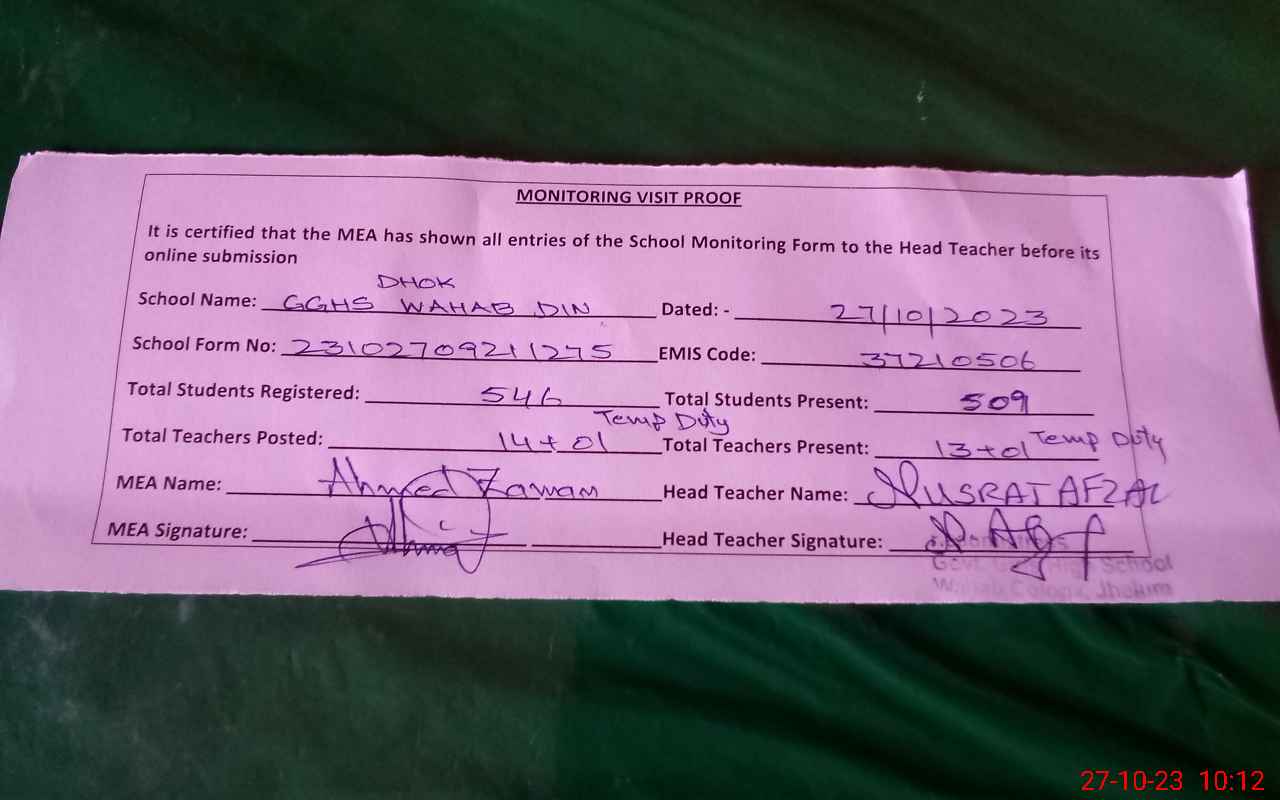 MONITORING VISIT PROOF
It is certified that the MEA has shown all entries of the School Monitoring Form to the Head Teacher before its
online submission
DHOK
School Name: GGHS WAHAB DIN Dated: - 27/10/2023
School Form No: 23102709211275 EMIS Code: 37210506
Total Students Registered: 546 Total Students Present: 509
Temp Duty
Total Teachers Posted: 14+01 Total Teachers Present: 13+01 Temp Duty
MEA Name: Ahmed Zaman Head Teacher Name: NUSRAT AFZAL
MEA Signature: Head Teacher Signature:
Govt. High School
Jhelum
27-10-23 10:12